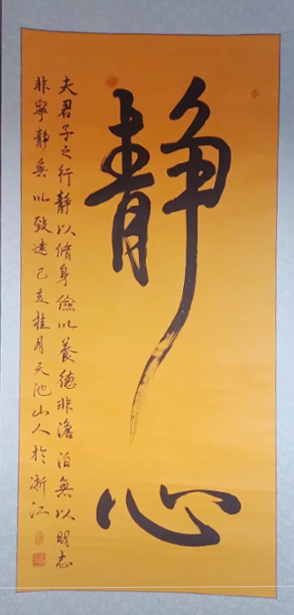 静心
夫君子之行静以脩身俭以養德非澹泊無以明志
非寧静無以致遠己亥桂月天池山人於浙江